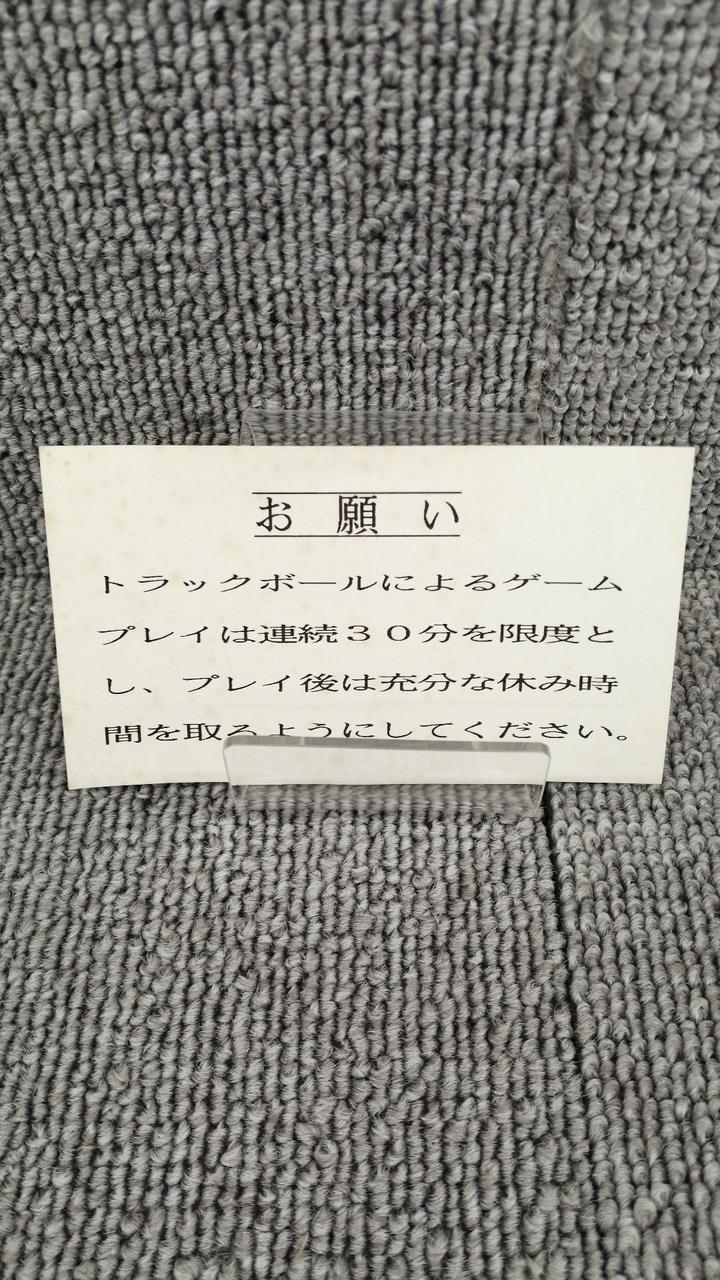 お願い
トラックボールによるゲーム
プレイは連続３０分を限度と
し、プレイ後は充分な休み時
間を取るようにしてください。